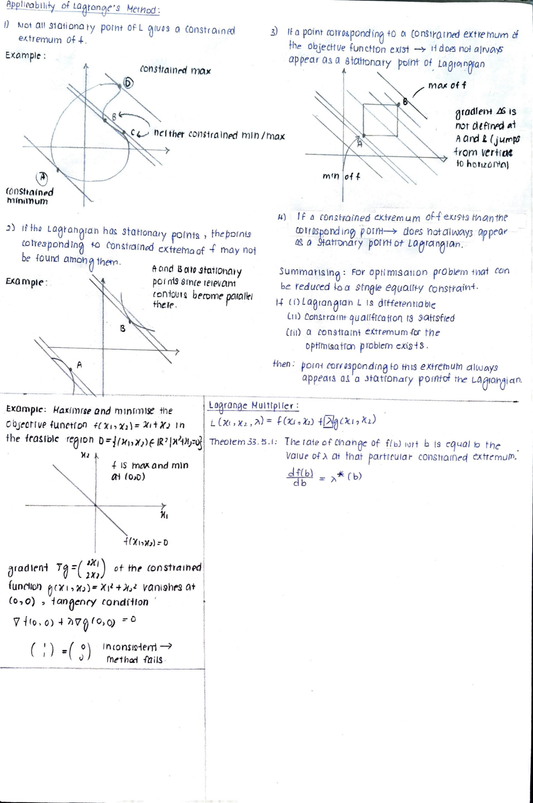 Applicability of Lagrange's Method:
1) Not all stationary point of L gives a constrained
extremum of f.
Example:
constrained max
D
B
C
neither constrained min/max
A
constrained
minimum
2) If the Lagrangian has stationary points, the points
corresponding to constrained extrema of f may not
be found among them.
Example:
A and B are stationary
points since relevant
contours become parallel
there.
B
A
3) If a point corresponding to a constrained extremum of
the objective function exist → it does not always
appear as a stationary point of Lagrangian
max of f
B
A
min of f
gradient ΔG is
not defined at
A and B (jumps
from vertical
to horizontal
4) If a constrained extremum of f exists than the
corresponding point → does not always appear
as a stationary point of Lagrangian.
Summarising: For optimisation problem that can
be reduced to a single equality constraint.
If (i) Lagrangian L is differentiable
(ii) Constraint qualification is satisfied
(iii) a constraint extremum for the
optimisation problem exists.
then: point corresponding to this extremum always
appears as a stationary point of the Lagrangian
Example: Maximise and minimise the
objective function f(x₁,x₂) = x₁+x₂ in
the feasible region D={(x₁,x₂) ∈ ℝ² | x²+x₂²=0}
x₂
f is max and min
at (0,0)
x₁
f(x₁,x₂)=0
gradient ∇g = (2x₁ 2x₂) of the constrained
function g(x₁,x₂) = x₁²+x₂² vanishes at
(0,0), tangency condition
∇f(0,0) + λ∇g(0,0) = 0
(1 1) = (0 0) inconsistent →
method fails
Lagrange Multiplier:
L(x₁,x₂,λ) = f(x₁,x₂) + λg(x₁,x₂)
Theorem 33.5.1: The rate of change of f(b) wrt b is equal to the
value of λ at that particular constrained extremum.
df(b)/db = λ*(b)